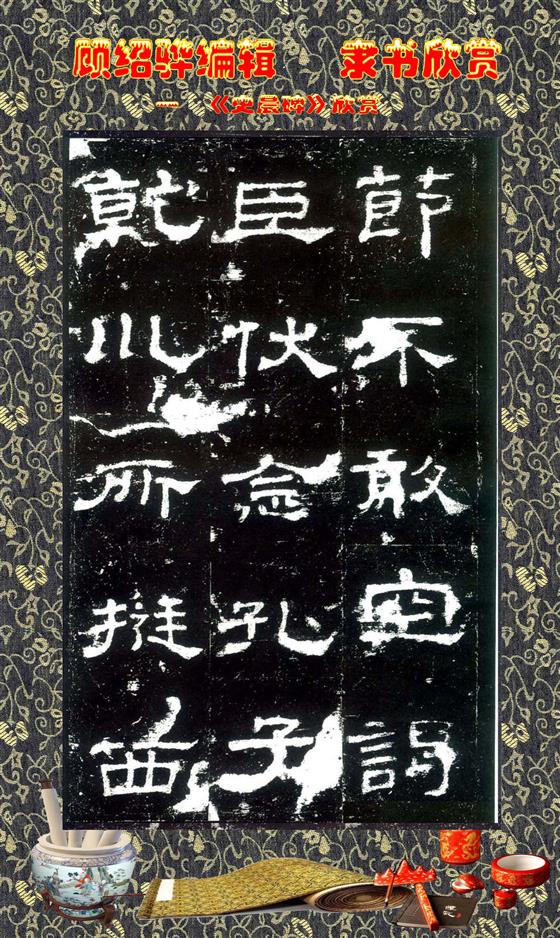 顾绍骅编辑 隶书欣赏
一 《史晨碑》欣赏
節不敢空謁
臣伏念孔子
乾川所挺西